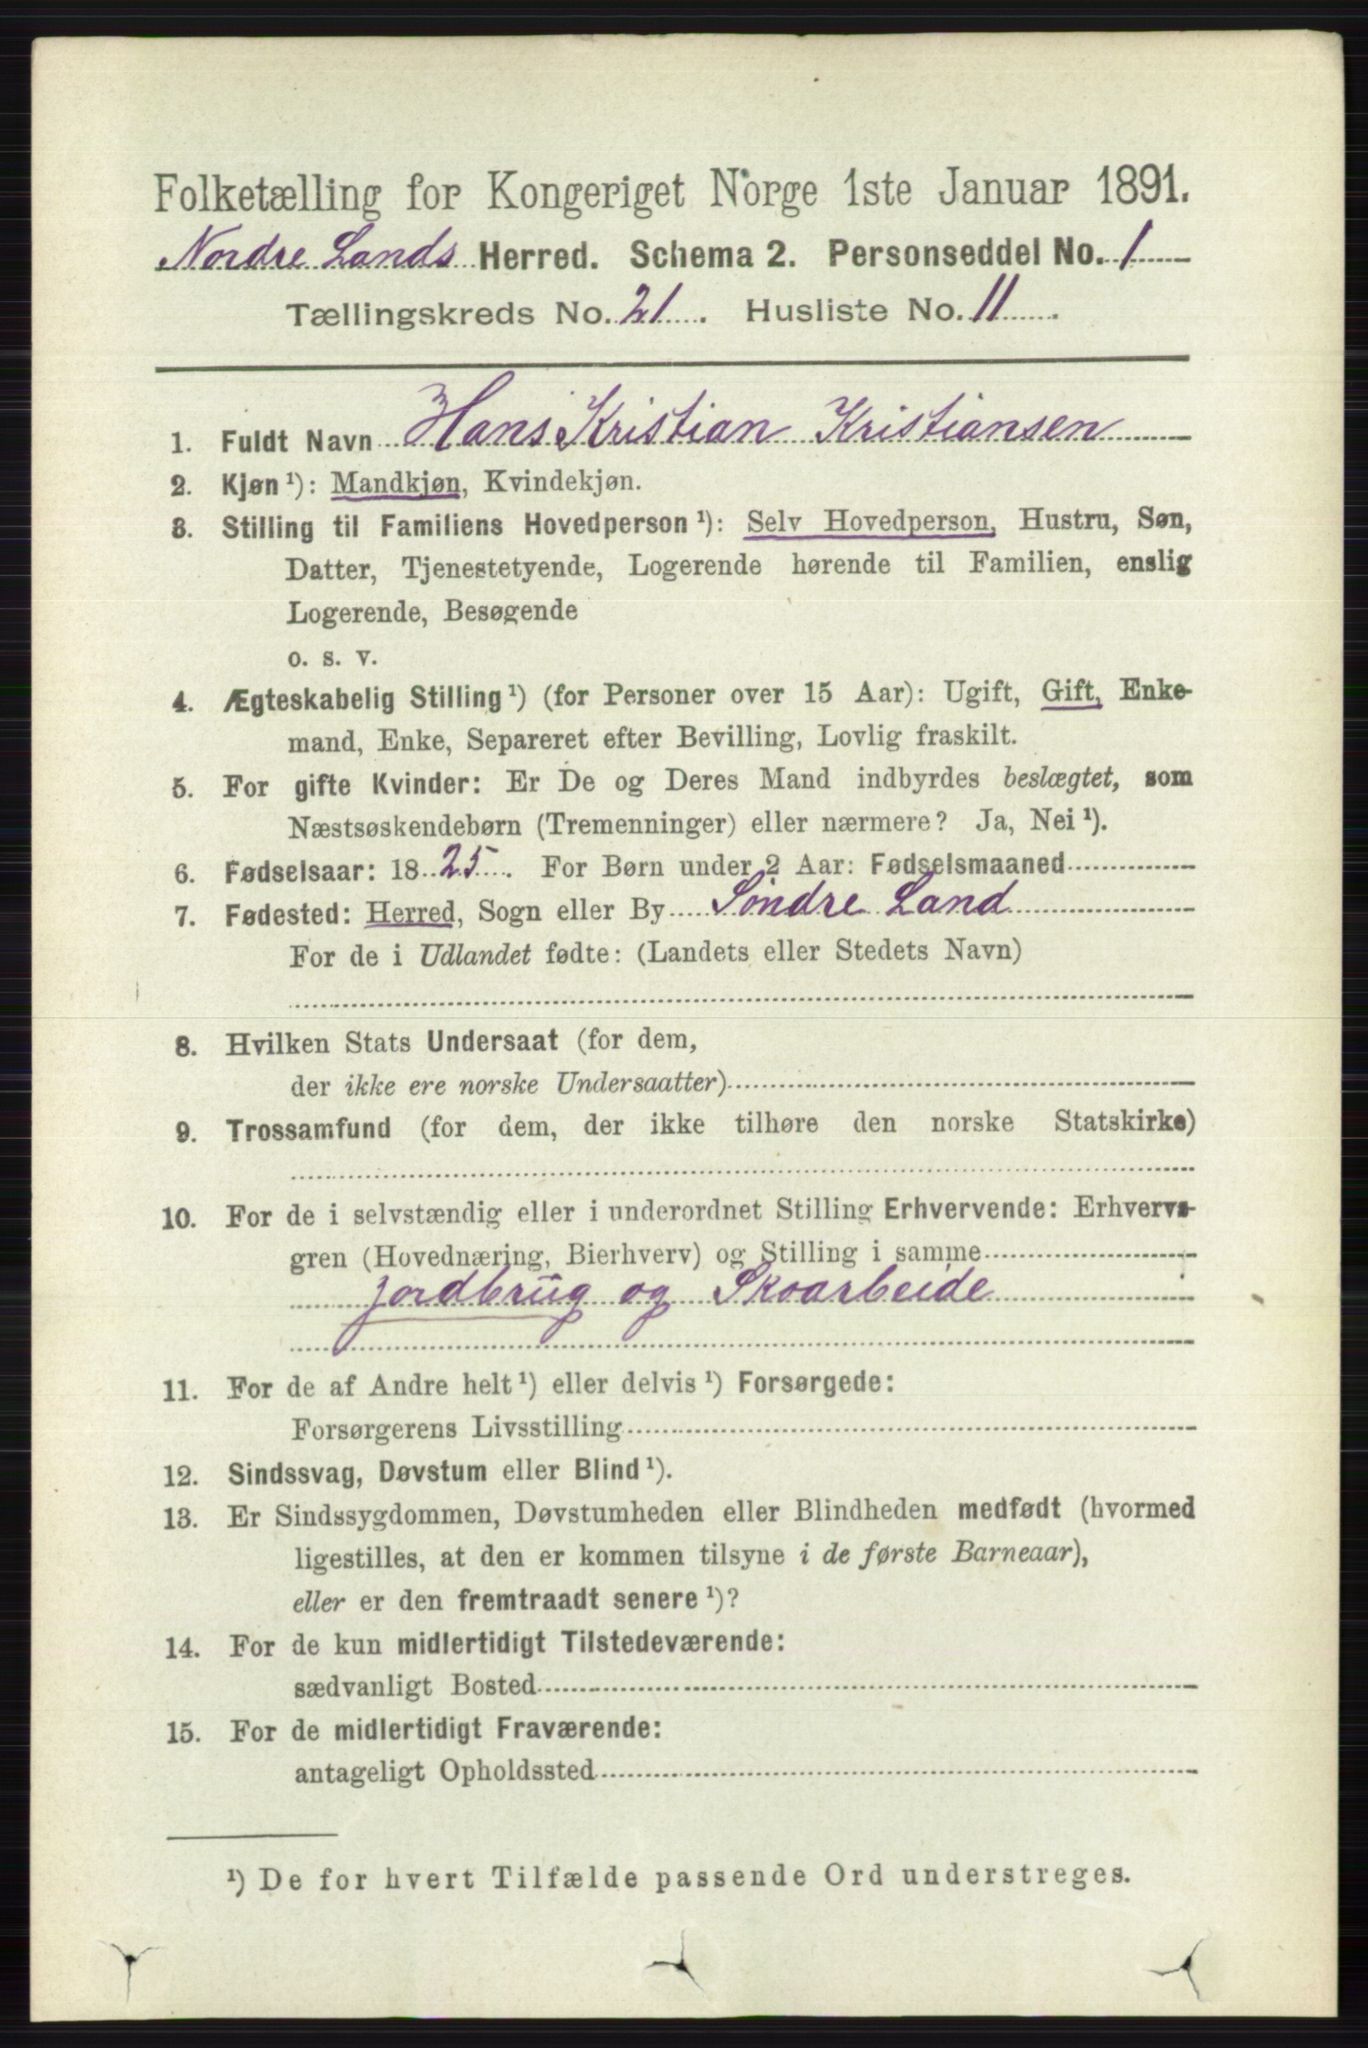 Folketælling for Kongeriget Norge 1ste Januar 1891.
Nordre Lands Herred. Schema 2. Personseddel No. 1
Tællingskreds No. 21. Husliste No. 11.
1. Fuldt Navn Hans Kristian Kristiansen
2. Kjøn ¹): Mandkjøn, Kvindekjøn.
3. Stilling til Familiens Hovedperson ¹): Selv Hovedperson, Hustru, Søn,
Datter, Tjenestetyende, Logerende hørende til Familien, enslig
Logerende, Besøgende
o. s. v.
4. Ægteskabelig Stilling ¹) (for Personer over 15 Aar): Ugift, Gift, Enke-
mand, Enke, Separeret efter Bevilling, Lovlig fraskilt.
5. For gifte Kvinder: Er De og Deres Mand indbyrdes beslægtet, som
Næstsøskendebørn (Tremenninger) eller nærmere? Ja, Nei ¹).
6. Fødselsaar: 1825. For Børn under 2 Aar: Fødselsmaaned
7. Fødested: Herred, Sogn eller By Søndre Land
For de i Udlandet fødte: (Landets eller Stedets Navn)
8. Hvilken Stats Undersaat (for dem,
der ikke ere norske Undersaatter)
9. Trossamfund (for dem, der ikke tilhøre den norske Statskirke)
10. For de i selvstændig eller i underordnet Stilling Erhvervende: Erhvervs-
gren (Hovednæring, Bierhverv) og Stilling i samme
jordbrug og Skoarbeide
11. For de af Andre helt ¹) eller delvis ¹) Forsørgede:
Forsørgerens Livsstilling
12. Sindssvag, Døvstum eller Blind ¹).
13. Er Sindssygdommen, Døvstumheden eller Blindheden medfødt (hvormed
ligestilles, at den er kommen tilsyne i de første Barneaar),
eller er den fremtraadt senere ¹)?
14. For de kun midlertidigt Tilstedeværende:
sædvanligt Bosted
15. For de midlertidigt Fraværende:
antageligt Opholdssted
¹) De for hvert Tilfælde passende Ord understreges.